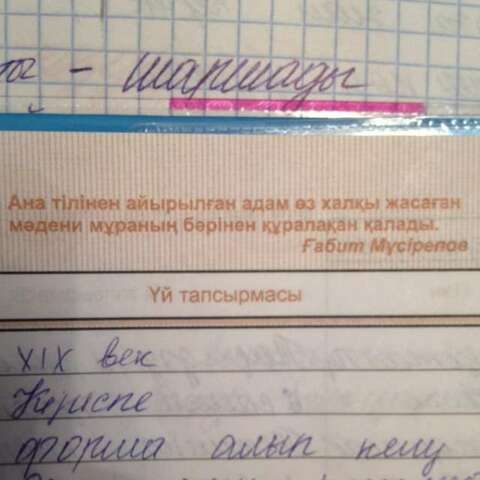 – шаршады
Ана тілінен айырылған адам өз халқы жасаған
мәдени мұраның бәрінен құралақан қалады.
Ғабит Мүсірепов
Үй тапсырмасы
XIX век
Кіріспе
форма алып келу